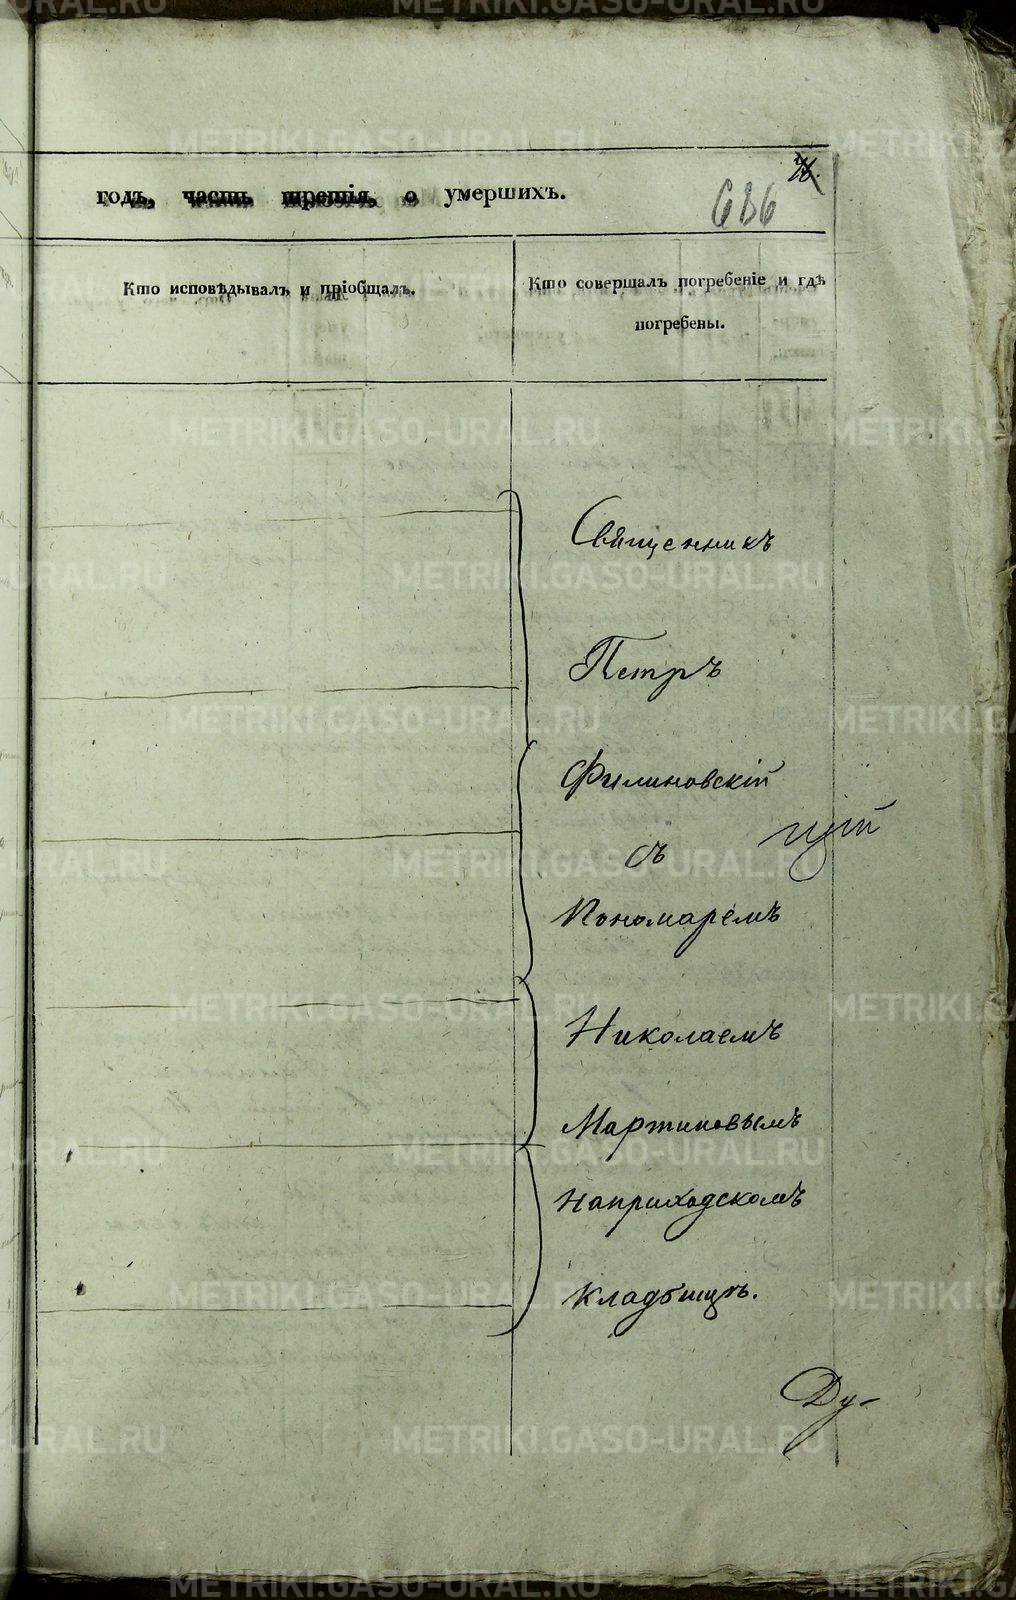 METRIKI.GASO-URAL.RU
годъ, часть третія, о умершихъ.
686
Кто исповѣдывалъ и пріобщалъ.
Кто совершалъ погребеніе и гдѣ
погребены.
Священникъ
Петръ
Филиновскій
съ
Пономаремъ
Николаемъ
Мартиновымъ
На приходскомъ
Кладбищѣ.
Ду-